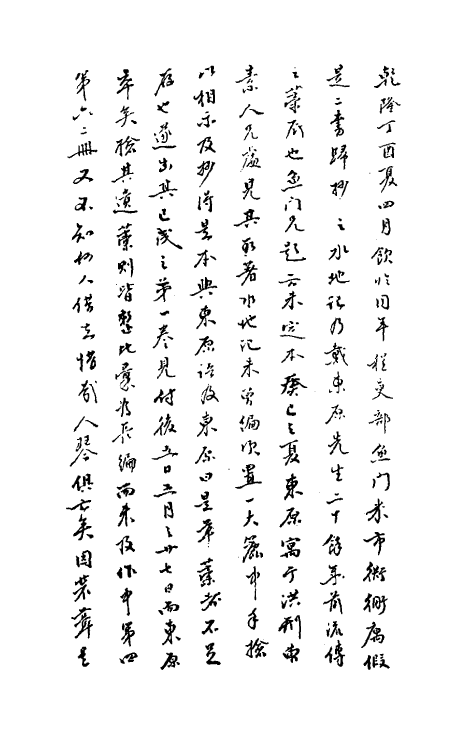 乾隆丁酉夏四月飲於同年程吏部魚門米市衚衕寓假
是二書歸抄之水地記乃戴東原先生二十餘年前流傳
之藁底也魚門兄題云未定本癸巳之夏東原寓于洪刑曹
素人兄處見其所著水地記未曾編次置一大簏中手撿
以相示及抄得是本與東原語及東原曰是草藁者不足
存也遂出其已成之第一卷見付後五日五月之廿七日而東原
卒矣撿其遺藁則皆整比彙為長編而未及作中第四
第六二冊又不知何人借去惜哉人琴俱亡矣因裝葺是